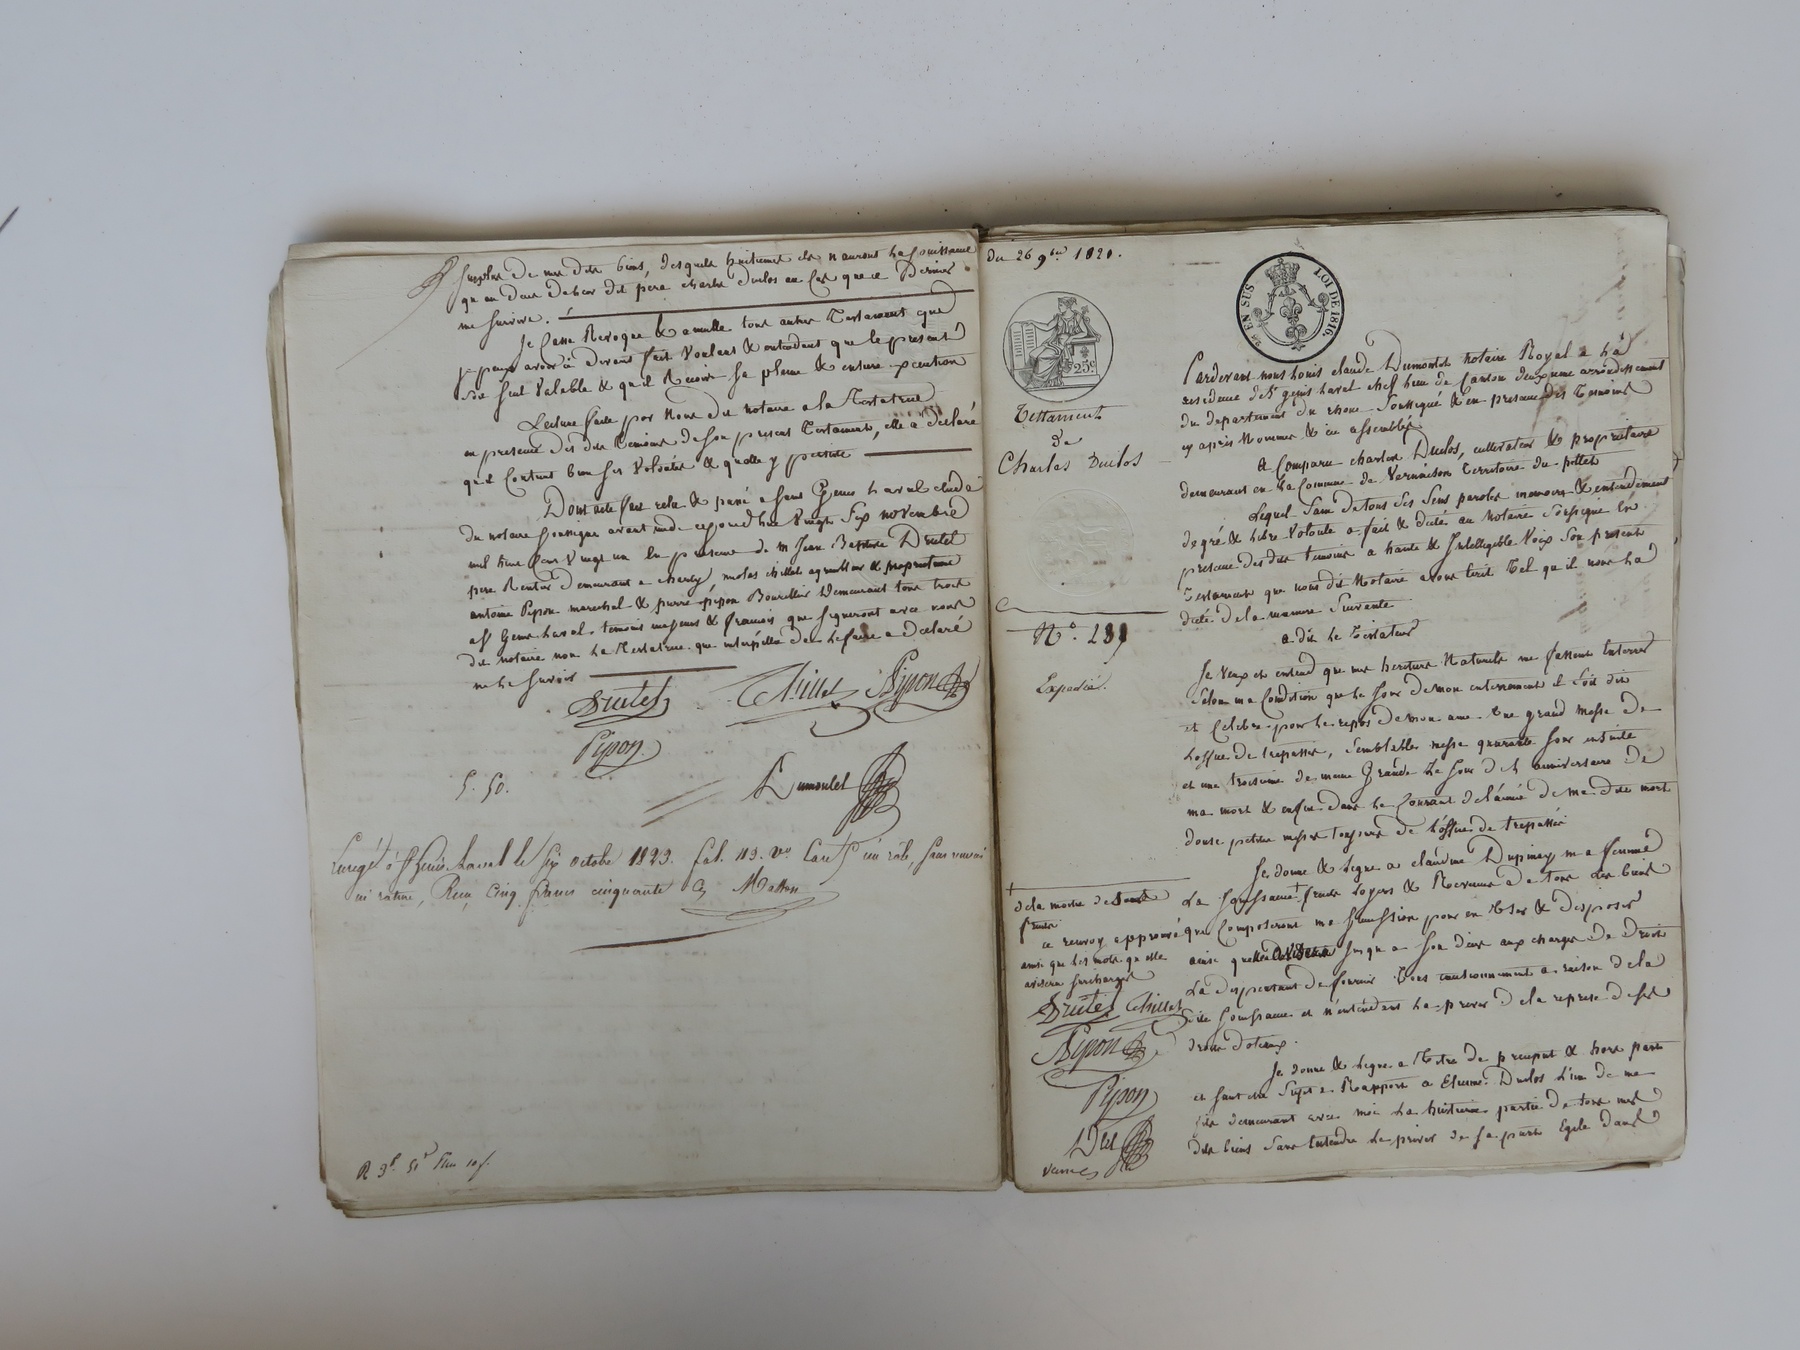 surplus de mes dits biens, desquels huitieme elle n'aurons la jouissance
qu'au deces dudit pere charles duclos au cas que ce Dernier
me survive.
Je Casse Revoque & annulle tous autres Testaments que
je peux avoir ci devant fait Voulant & entendant que le present
soit seul Valable & qu'il Recoive sa pleine & entiere execution
Lecture faite par Nous dit notaire a la Testatrice
en presence des dits temoins de son present Testament, elle a déclaré
qu'il Contient bien ses Volontés & quelle y persiste
Dont acte fait relu & passé a Saint Genis Laval etude
du notaire soussigné avant midi cejourdhui Vingt Six novembre
mil huit Cent Vingt un En presence de m Jean Baptiste Drutel
pere Rentier demeurant a charly, chillet agriculteur & proprietaire
antoine Pipon marechal & pierre pipon Bourrelier Demeurant tous trois
a St Genis Laval temoins majeurs & francois que signeront avec nous
dit notaire non la Testatrice que interpellée de le faire a Declaré
ne le Savoir
Drutel Chillet APipon
Pipon
5. 50. Dumoulet
Enregé à St Genis Laval le Six Octobre 1823. fol. 113. Vo Cases un rôle, sans renvoi
ni rature, Reçu Cinq francs cinquante C
R 3f 51
du 26 9bre 1821.
EN SUS LOI DE 1816.
25c
Testament
de
Charles Duclos
No. 289
Expedié.
Pardevant nous Louis claude Dumoulet notaire Royal a la
residence de St genis laval cheff lieu de Canton deuxieme arrondissement
du departement du rhone Soussigné & en presence des Temoins
cy apres Nommés & en assemblés
A Comparu charles Duclos, cultivateur & proprietaire
demeurant en la Commune de Vernaison Territoire du pellet
Lequel Sain de tous Ses Sens parole memoire & entendement
de gré & libre Volonté a fait & dicté au Notaire Soussigné En
presence des dits temoins a haute & Intelligible Voix Son present
Testament que nous dit Notaire avons Ecrit Tel qu'il nous l'a
dicté de la maniere Suivante
a dit le Testateur
Je Veux et entend que mes heritiers Naturels me fassent Enterrer
Selon ma Condition que le jour de mon enterrement il Soit dit
et Celebré pour le repos de mon ame Une grand Messe de
L'office de trepasses, Semblable messe quarante jour ensuite
et une troisieme de meme Grande Le jour de l anniversaire de
ma mort & enfin dans le Courant de l'année de ma dite mort
douse petites messes toujours de l'office de trepassés
Je donne & legue a claudine Dupinay ma femme
La Jouissance fruits Loyers & Revenus de tous les biens
que Composeront ma Succession pour en User & disposer
ainsi quelle avisera jusqu a Son deces aux charges de Droit
La dispensant de fournir Tous cautionnement a raison de la
dite Jouissance et n'entendant la priver de la reprise de ses
droits dotaux.
Je donne & legue a Titre de preciput & hors part
et sans etre Sujet a Rapport a Etienne Duclos l'un de mes
fils demeurant avec moi la huitieme partie de tous mes
dits biens Sans Entendre le priver de sa part Egale dans
de la moitie de tous
fruits
ce renvoy approuvé
ainsi que les mots qu elle
avisera surchargés
Drutel Chillet
APipon
Pipon
Dlet